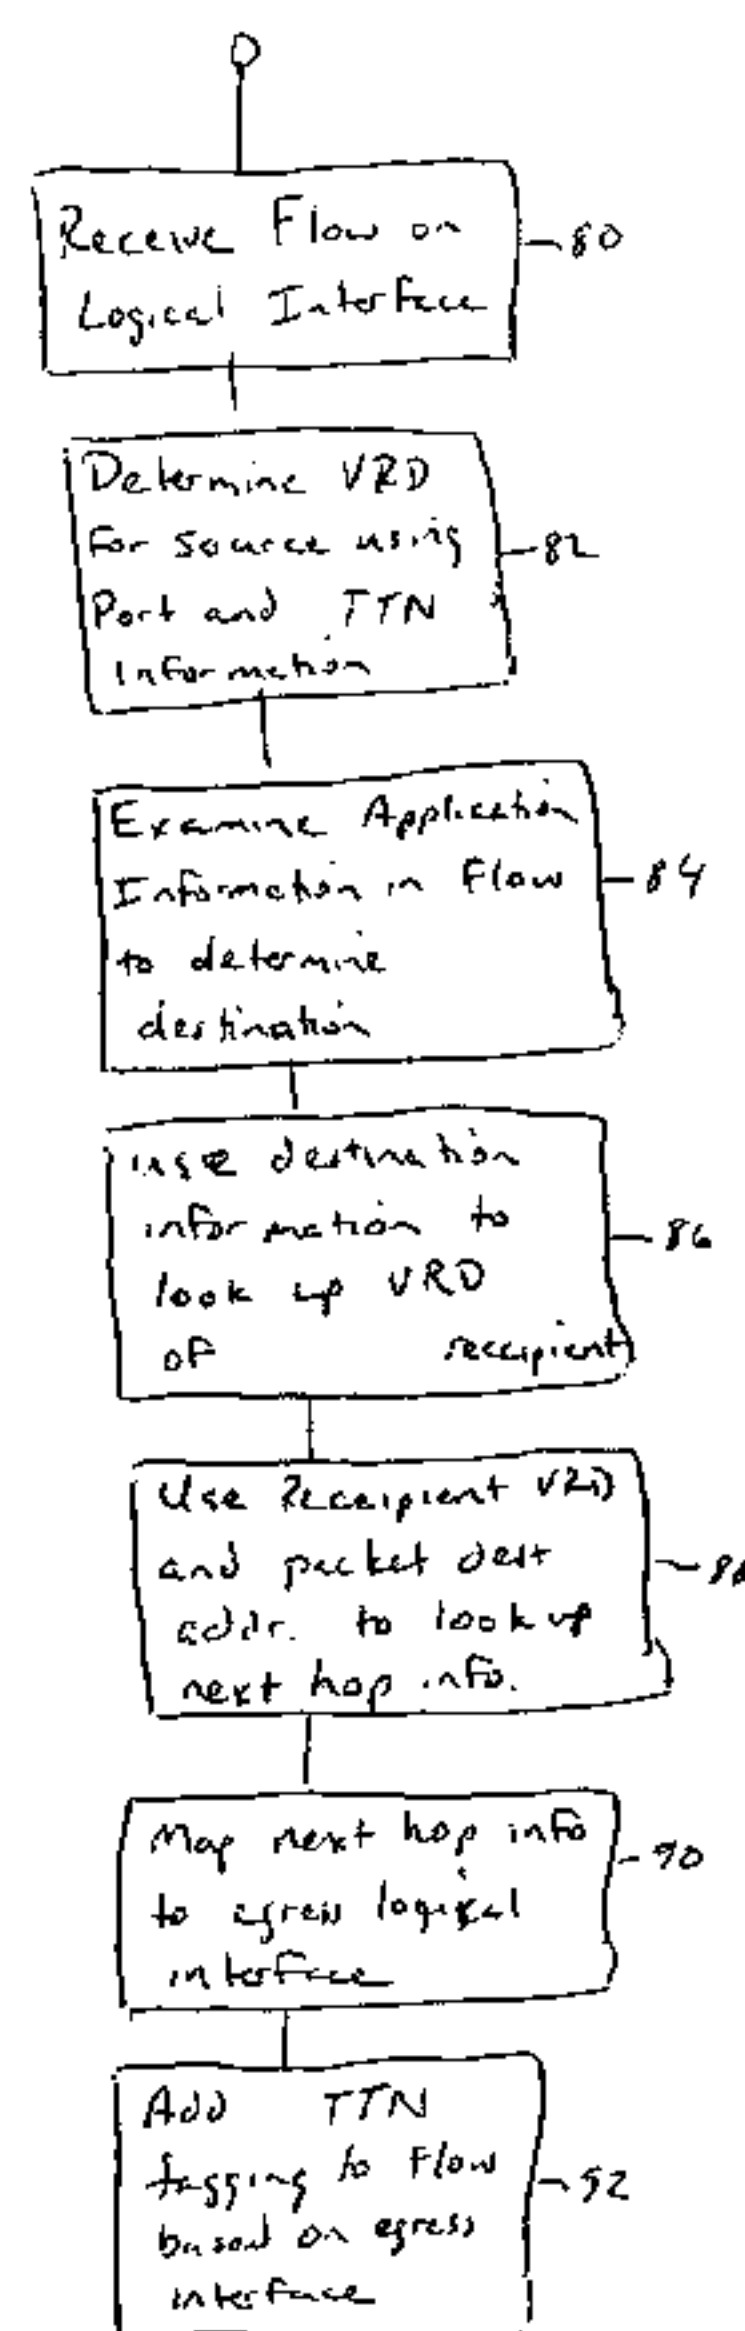 Receive Flow on
Logical Interface
80
Determine VRD
for source using
Port and TTN
Information
82
Examine Application
Information in Flow
to determine
destination
84
use destination
information to
look up VRD
of reccipient
86
Use Reccipient VRD
and packet dest
addr. to look up
next hop info.
88
Map next hop info
to egress logical
interface
90
Add TTN
tagging to Flow
based on egress
interface
92